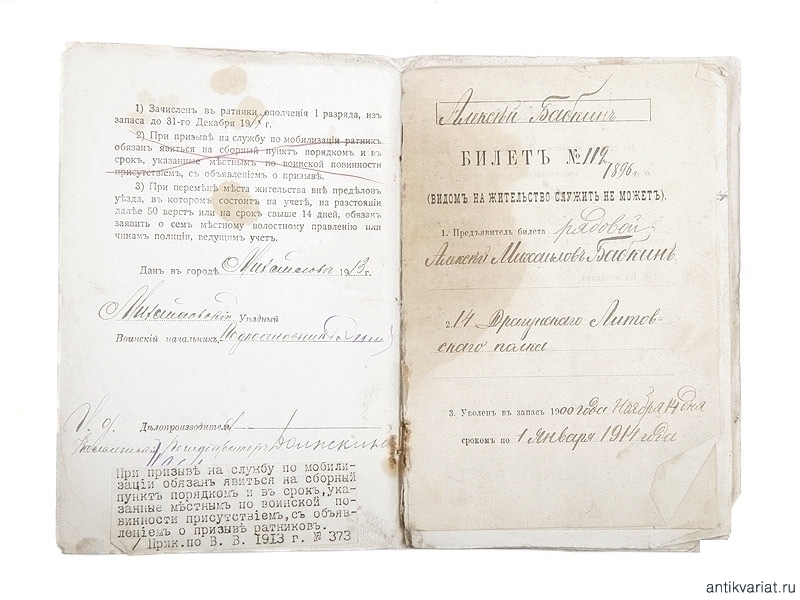 1) Зачисленъ въ ратники ополченія I разряда, изъ
запаса до 31-го Декабря 191 г.
2) При призывѣ на службу по мобилизаціи ратник
обязан явиться на сборный пунктъ порядкомъ и въ
срокъ, указанные мѣстнымъ по воинской повинности
присутствіемъ, съ объявленіемъ о призывѣ.
3) При перемѣнѣ мѣста жительства внѣ предѣловъ
уѣзда, въ которомъ состоитъ на учетѣ, на разстояніи
далѣе 50 верстъ или на срокъ свыше 14 дней, обязан
заявить о семъ мѣстному волостному правленію или
чинамъ полиціи, ведущимъ учет.
Данъ въ городѣ Михайловъ 1913 г.
Михайловскій Уѣздный
Воинскій начальникъ, Подполковникъ
И. о. Дѣлопроизводителя
При призывѣ на службу по мобили-
заціи обязанъ явиться на сборный
пунктъ порядкомъ и въ срокъ,ука-
занные мѣстнымъ по воинской по-
винности присутствіемъ,съ объяв-
леніемъ о призывѣ ратниковъ.
/ Прик.по В. В. 1913 г. № 373
Алексѣй Бабкинъ
БИЛЕТЪ № 112
1896 г.
(ВИДОМЪ НА ЖИТЕЛЬСТВО СЛУЖИТЬ НЕ МОЖЕТЪ).
1. Предъявитель билета рядовой
Алексѣй Михайловъ Бабкинъ
2. 14 Драгунскаго Литов-
скаго полка
3. Уволенъ въ запасъ 1900 года Ноября 14 дня
срокомъ по 1 Января 1914 года
antikvariat.ru